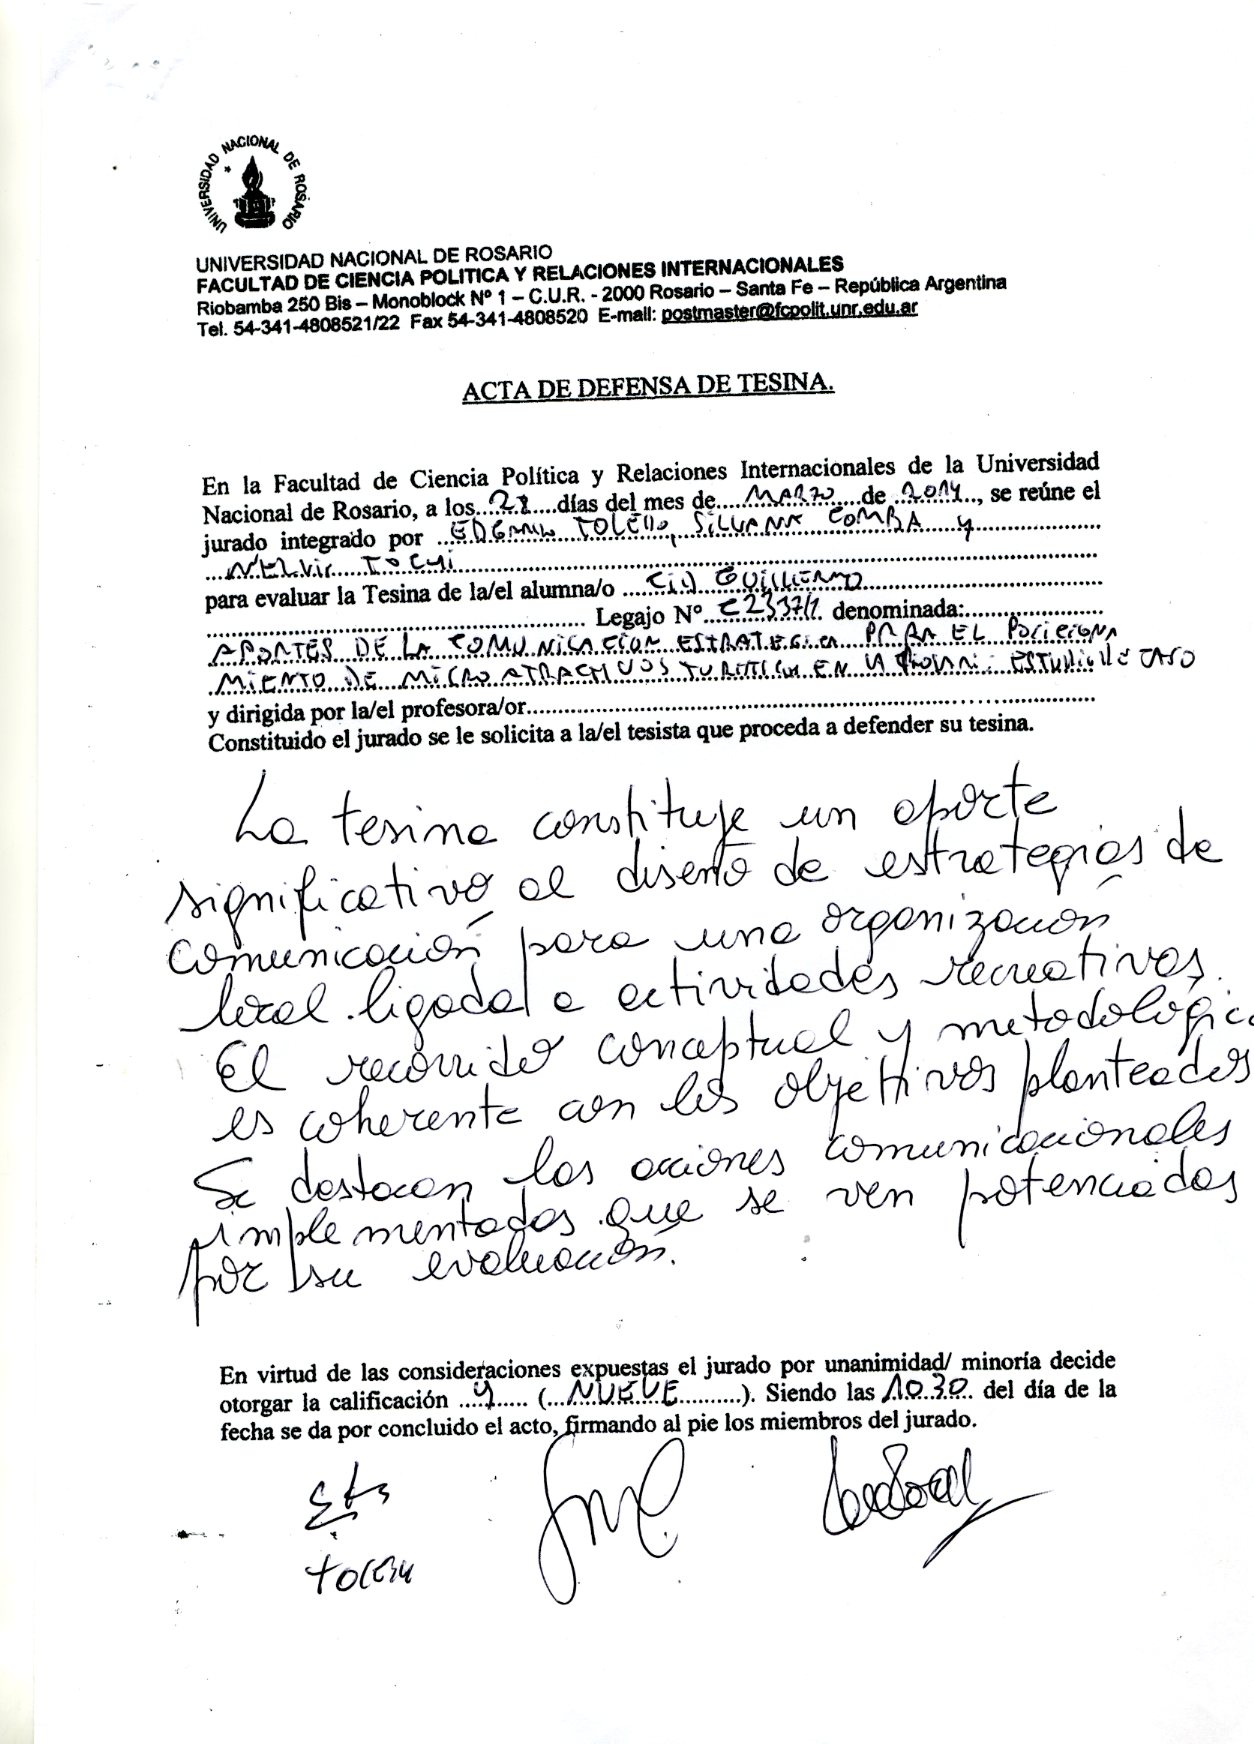 UNIVERSIDAD NACIONAL DE ROSARIO
UNIVERSIDAD NACIONAL DE ROSARIO
FACULTAD DE CIENCIA POLITICA Y RELACIONES INTERNACIONALES
Riobamba 250 Bis – Monoblock Nº 1 – C.U.R. - 2000 Rosario – Santa Fe – República Argentina
Tel. 54-341-4808521/22 Fax 54-341-4808520 E-mail: postmaster@fcpolit.unr.edu.ar
ACTA DE DEFENSA DE TESINA.
En la Facultad de Ciencia Política y Relaciones Internacionales de la Universidad
Nacional de Rosario, a los...días del mes de...MARZO...de 2014..., se reúne el
jurado integrado por ...EDGARDO TOLEDO, SILVANA COMBA y
TOCHI
para evaluar la Tesina de la/el alumna/o ...CID GUILLERMO
Legajo Nº denominada:
APORTES DE LA COMUNICACION ESTRATEGICA PARA EL POSICIONA
MIENTO DE MICRO ATRACTIVOS TURISTICOS EN LA ESTUDIO DE CASO
y dirigida por la/el profesora/or
Constituido el jurado se le solicita a la/el tesista que proceda a defender su tesina.
La tesina constituye un aporte
significativo al diseño de estrategias de
comunicación para una organización
local ligada a actividades recreativas.
El recorrido conceptual y metodológico
es coherente con los objetivos planteados
Se destacan las acciones comunicacionales
implementadas que se ven potenciadas
por su evaluación.
En virtud de las consideraciones expuestas el jurado por unanimidad/ minoría decide
otorgar la calificación ...9... (...NUEVE...). Siendo las 10.30. del día de la
fecha se da por concluido el acto, firmando al pie los miembros del jurado.
TOLEDO